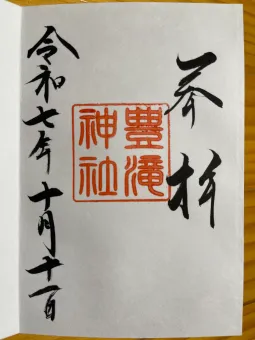 奉拝
豊滝神社
令和七年十月十一日